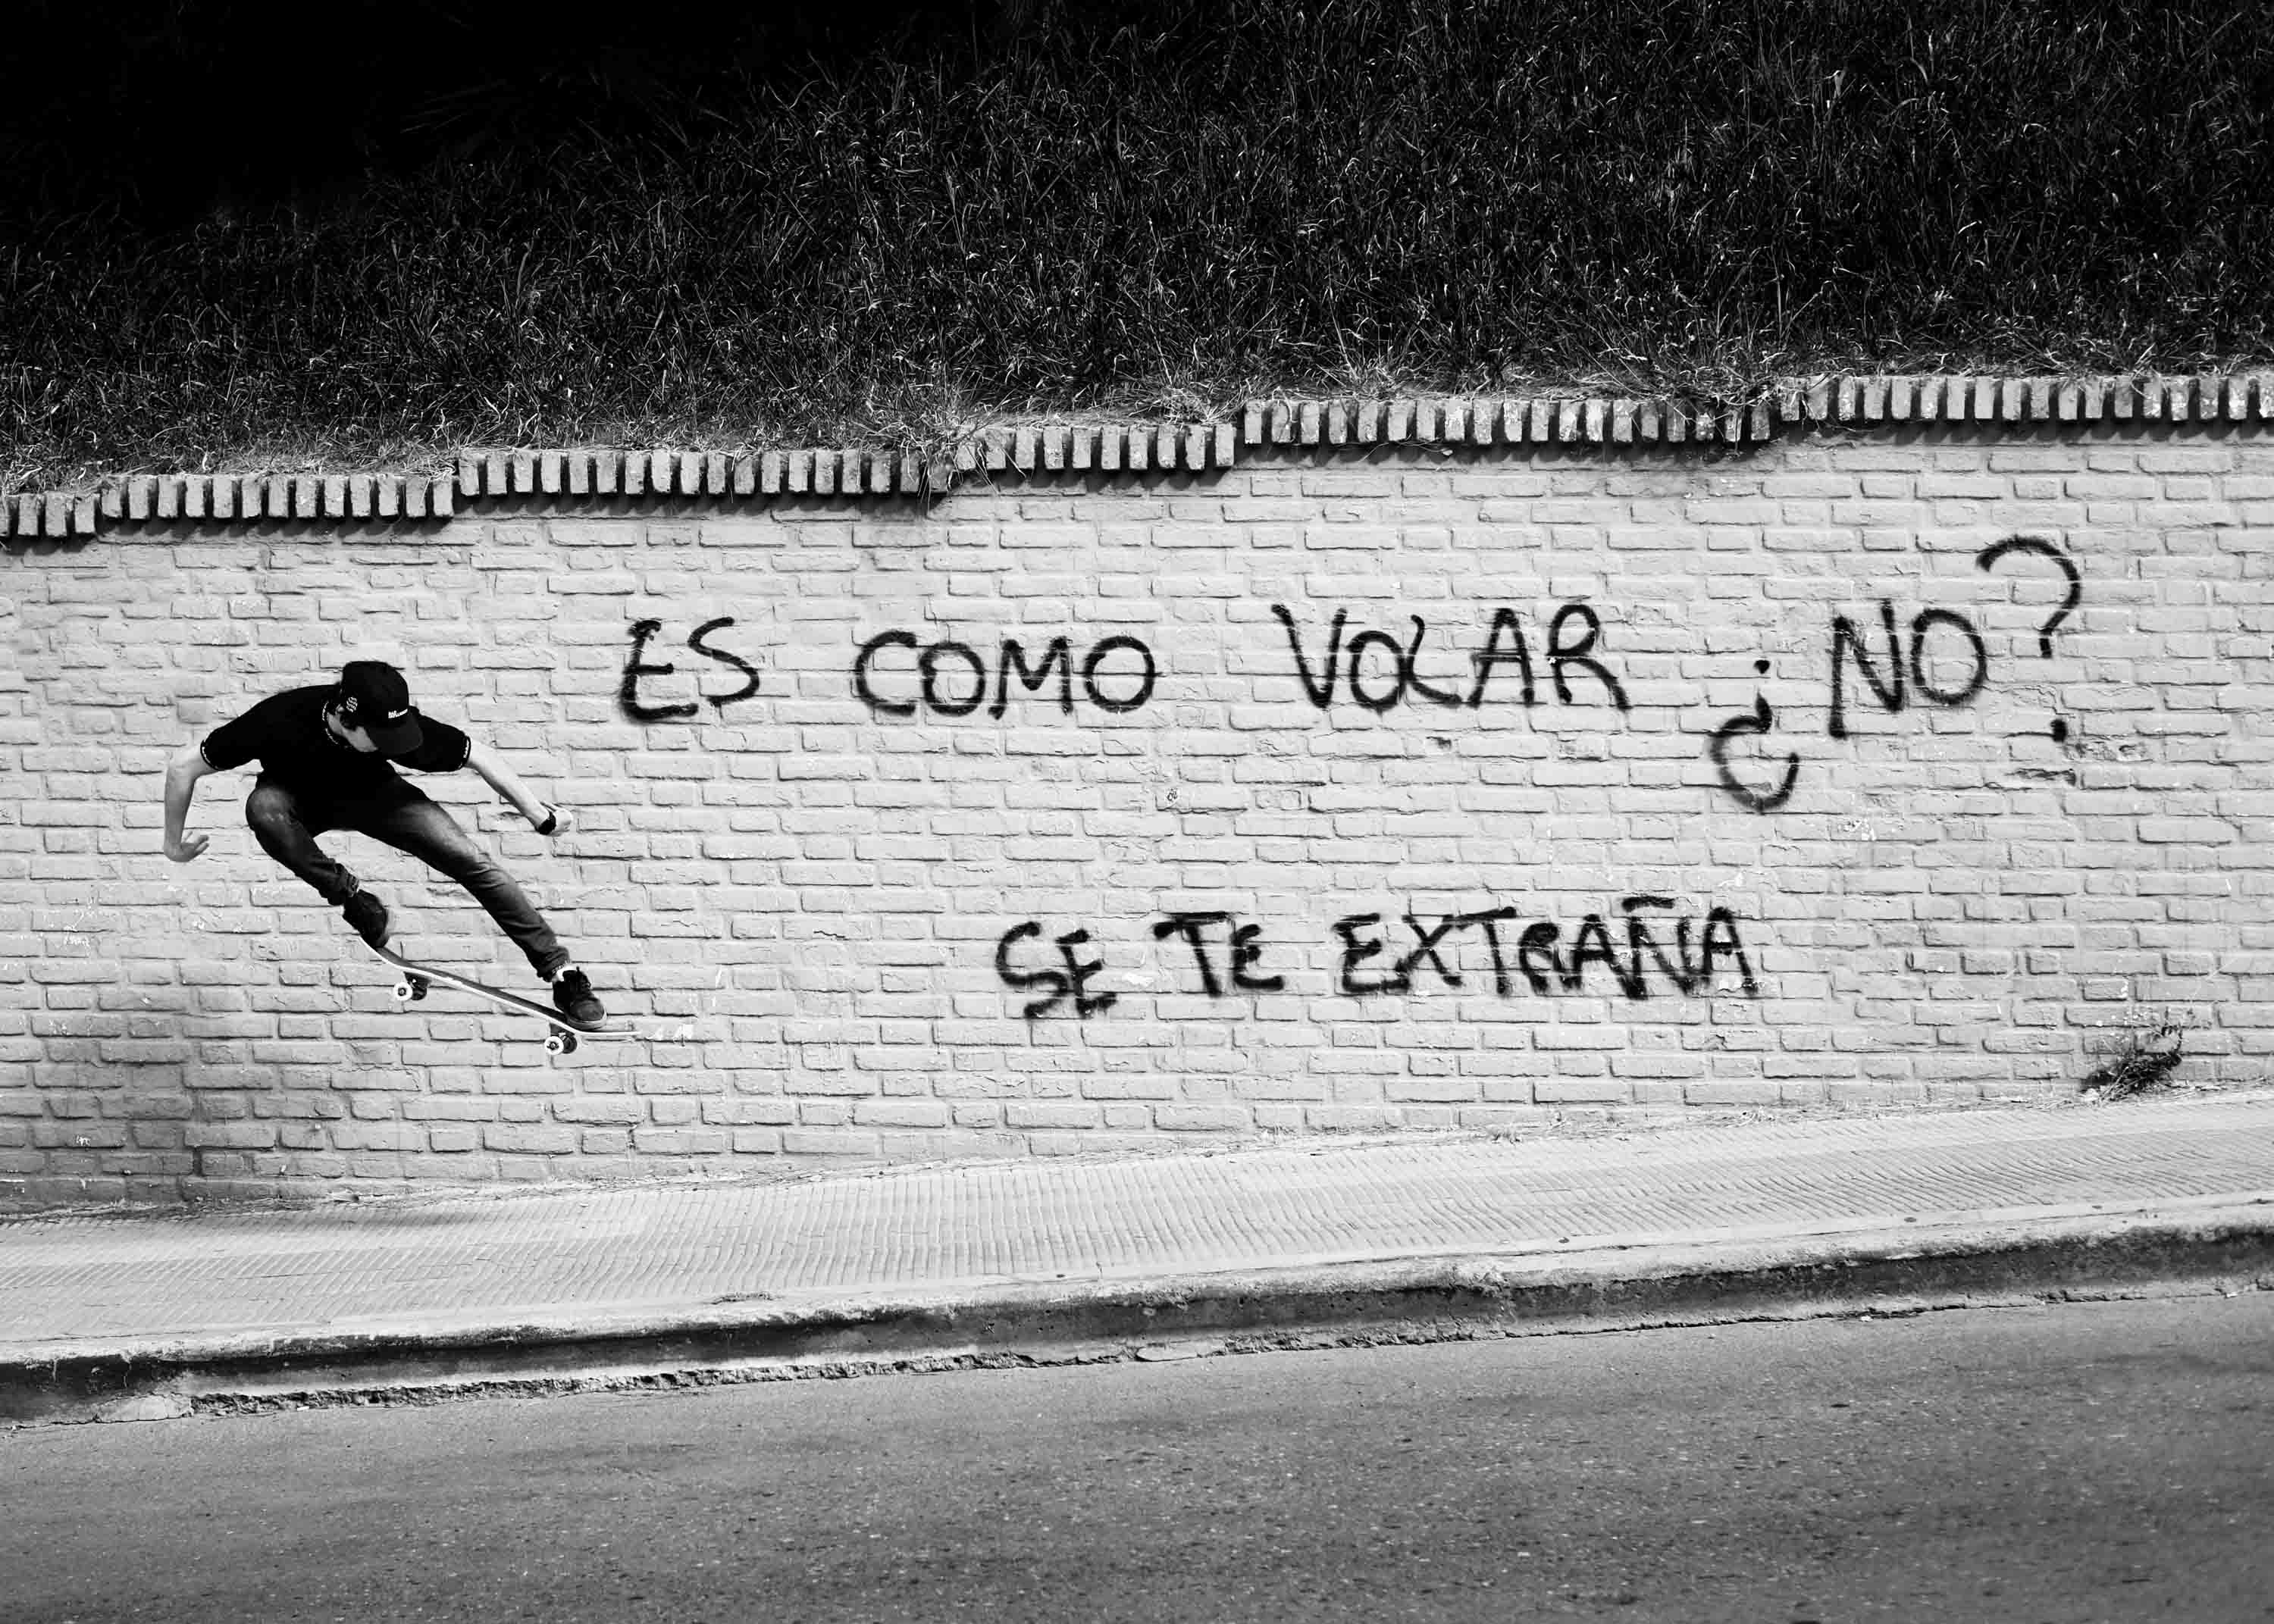 ES COMO VOLAR ¿NO?
SE TE EXTRAÑA